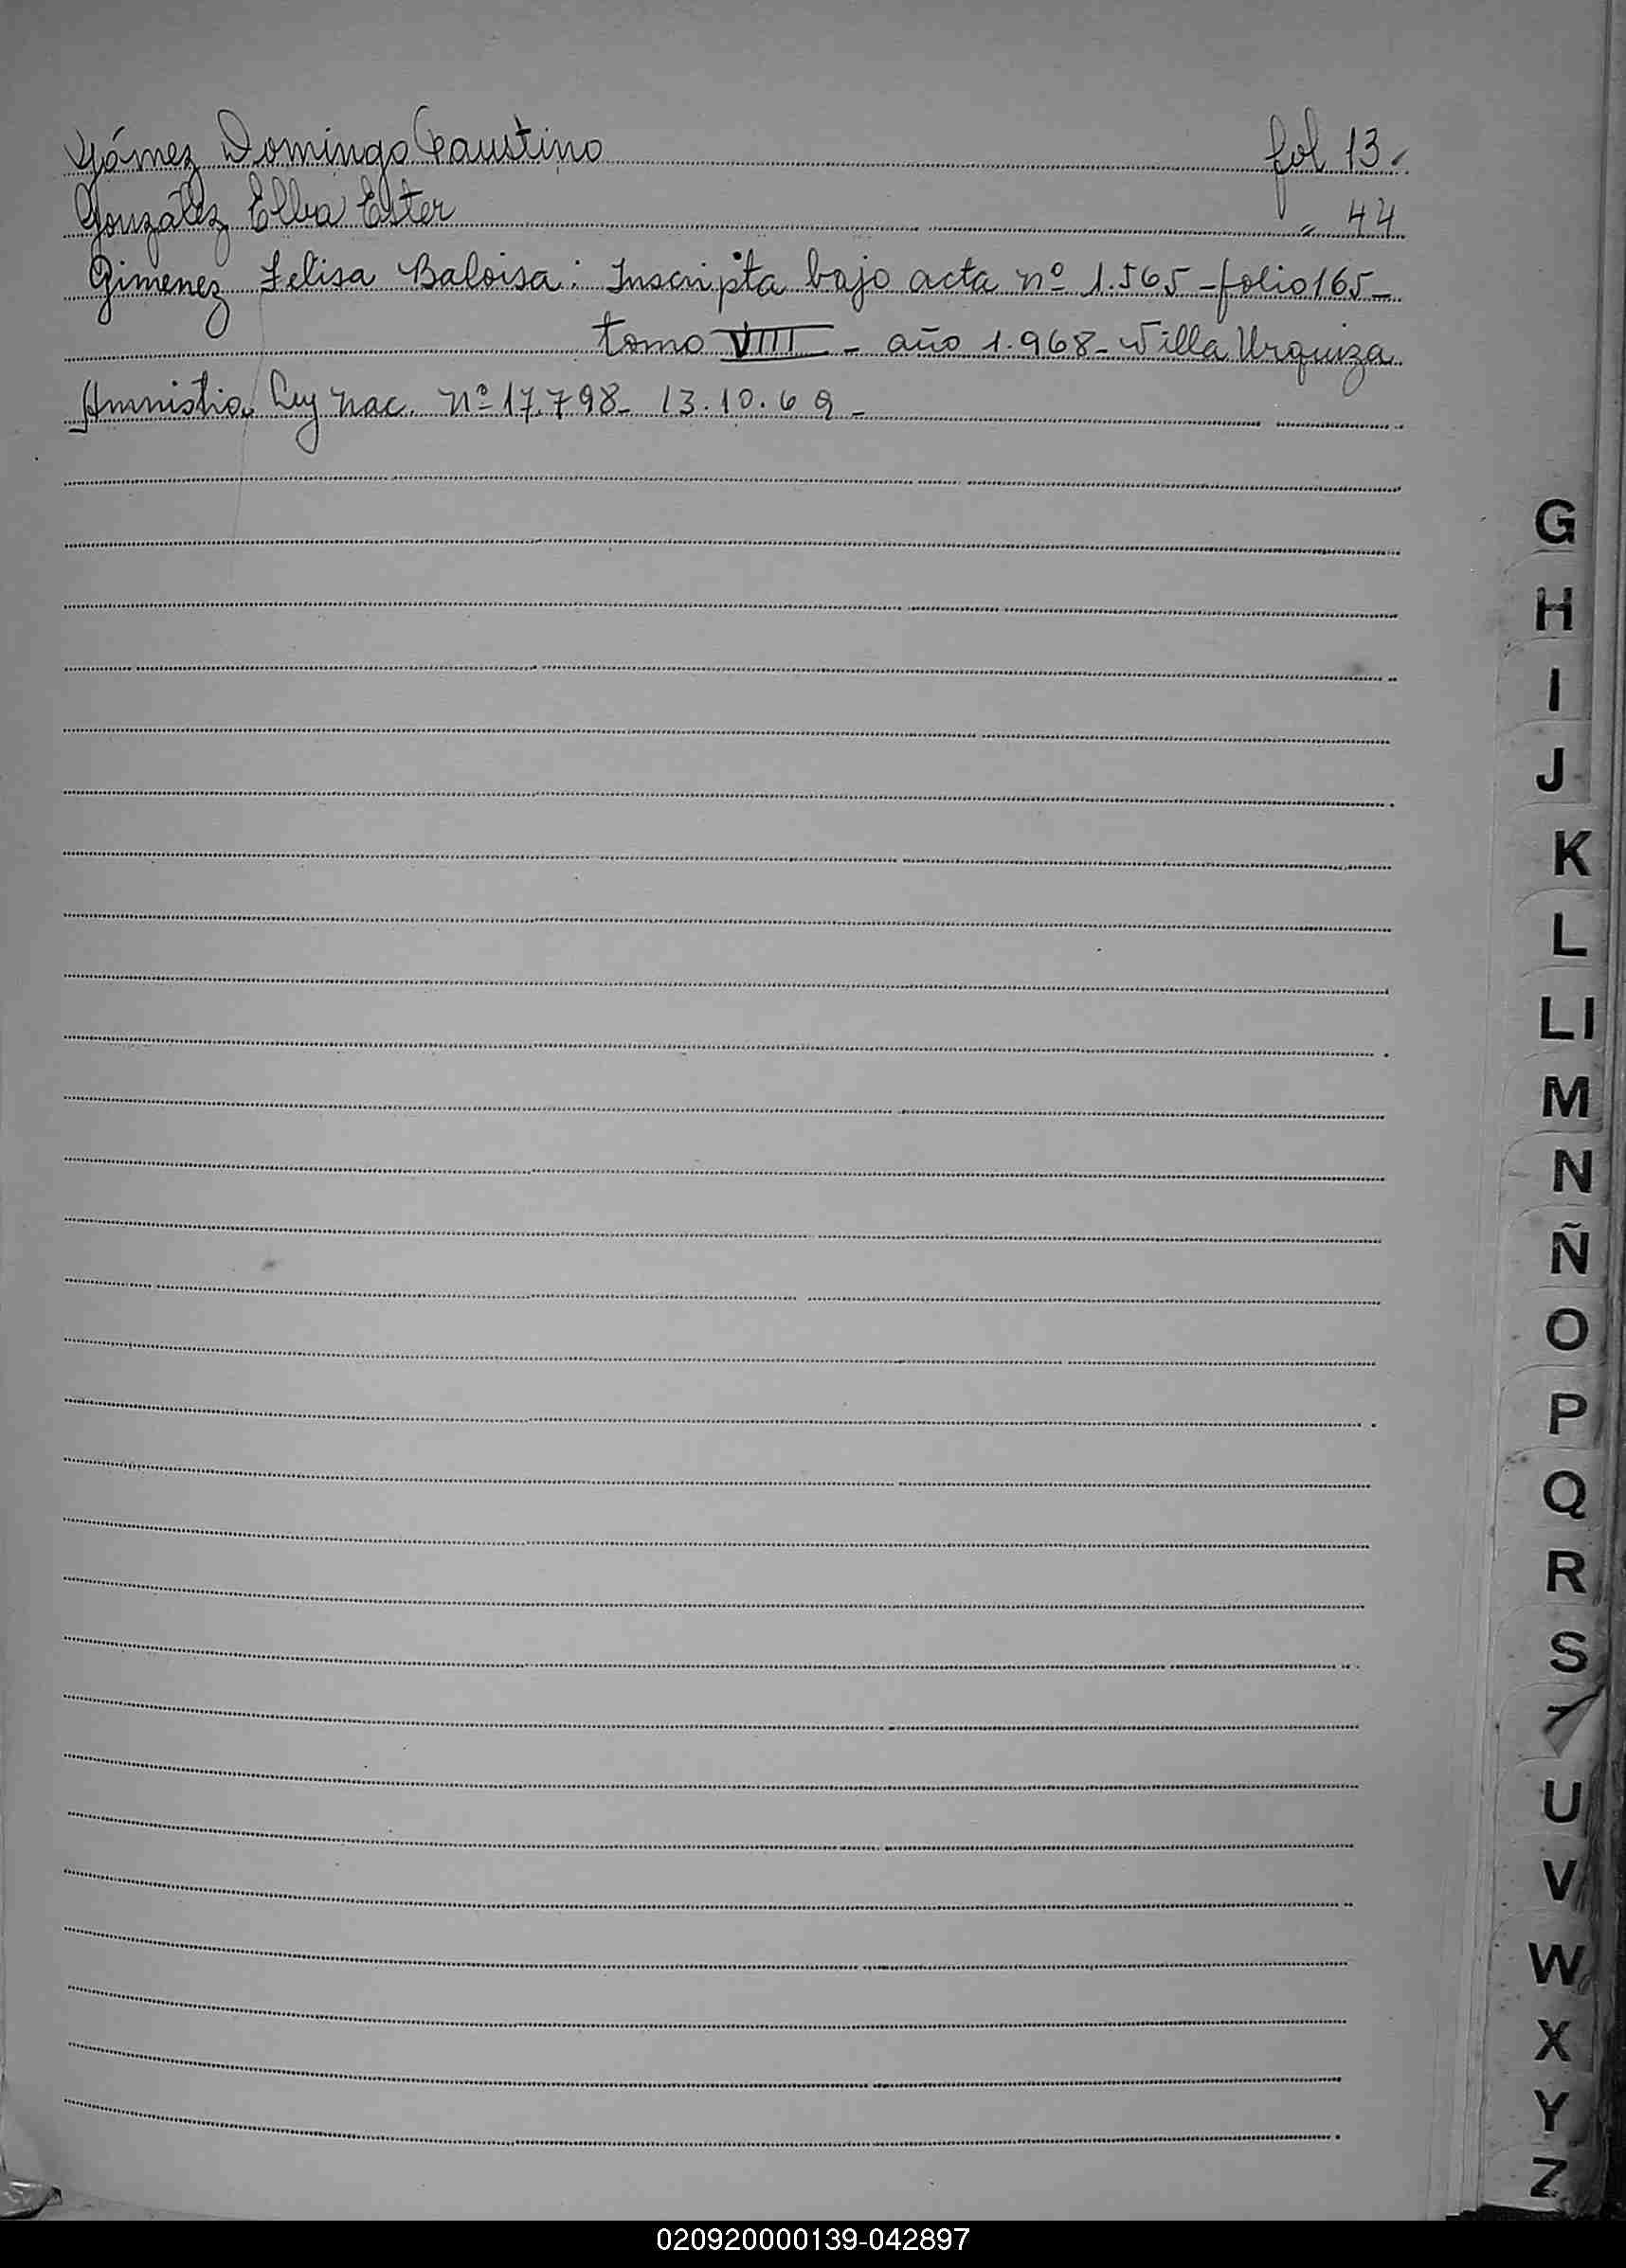 Gómez Domingo Faustino fol 13.
González Elba Ester " 44
Gimenez Felisa Baloisa: Inscripta bajo acta nº 1.565 - folio 165 -
tomo VIII - año 1.968 - Villa Urquiza
Amnistia Ley Nac. Nº 17.798 - 13.10.69 -
G
H
I
J
K
L
Ll
M
N
Ñ
O
P
Q
R
S
T
U
V
W
X
Y
Z
020920000139-042897